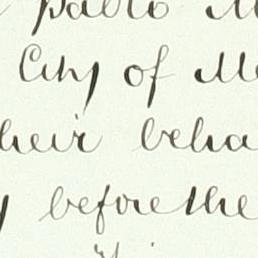 Pablo M
City of Me
heir beha
y before the